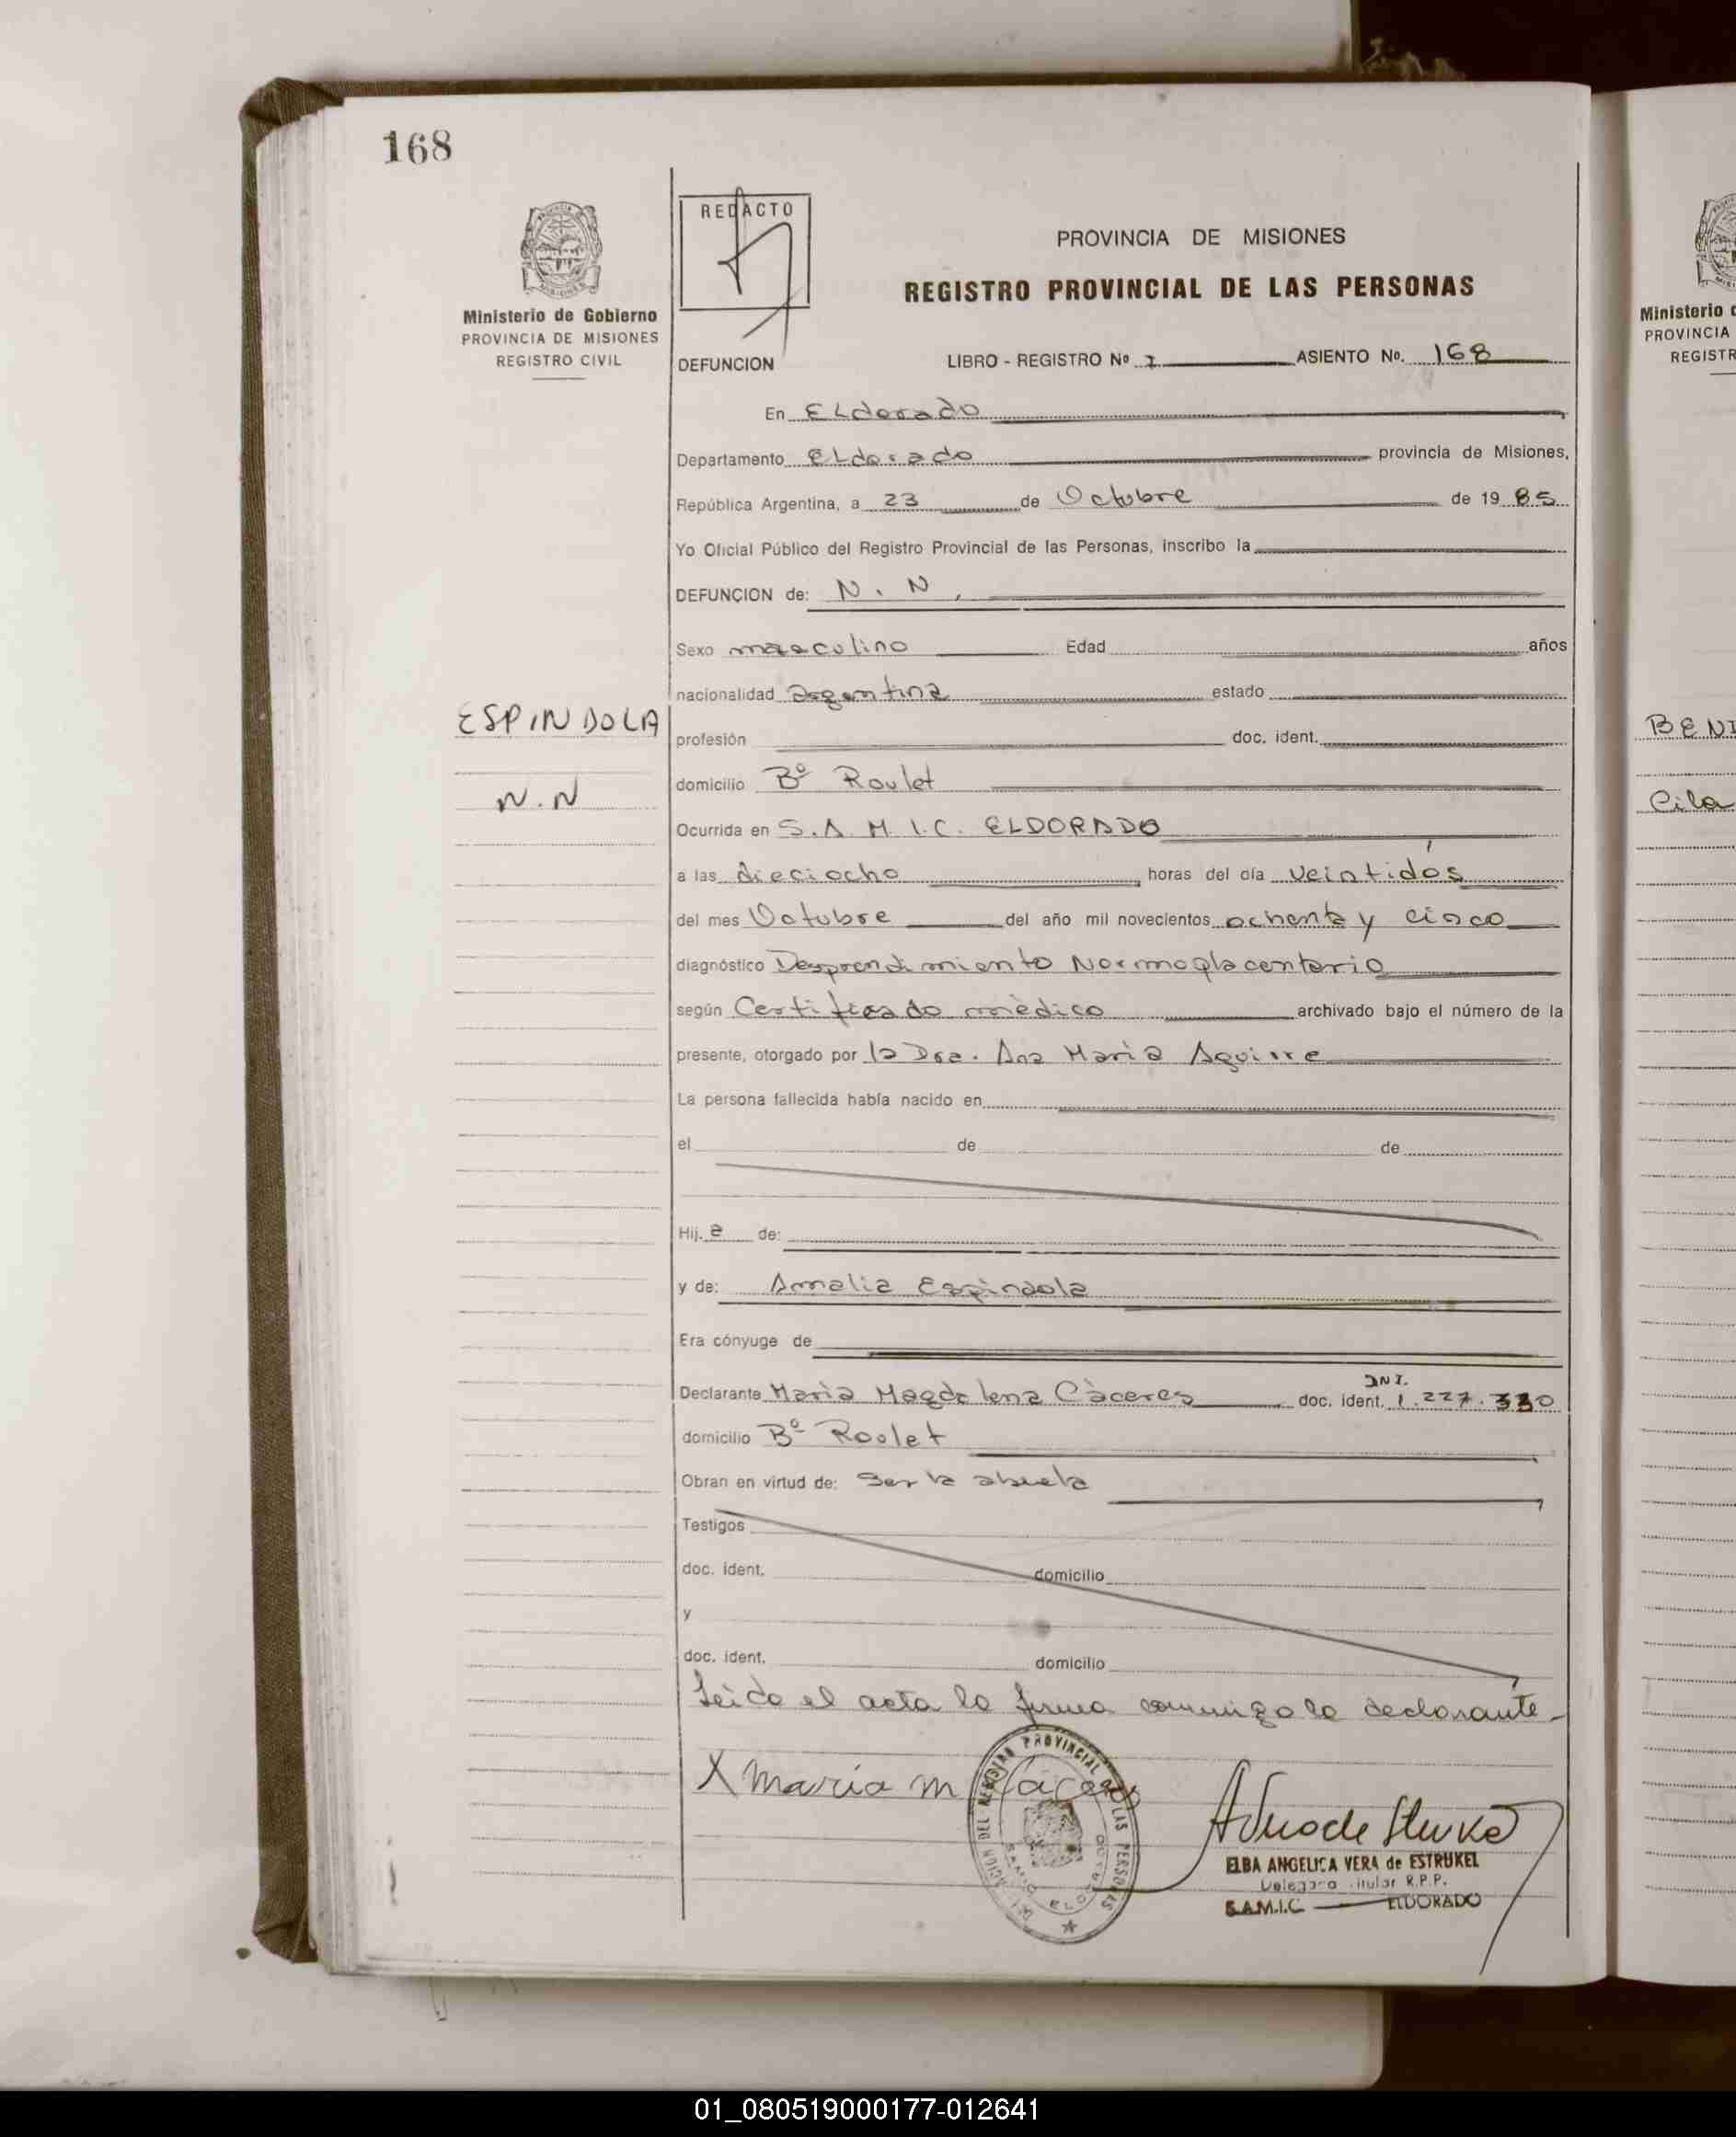 168
REDACTO
PROVINCIA DE MISIONES
REGISTRO PROVINCIAL DE LAS PERSONAS
Ministerio de Gobierno
PROVINCIA DE MISIONES
REGISTRO CIVIL
DEFUNCION LIBRO - REGISTRO Nº 1 ASIENTO No. 168
En ELdorado
Departamento ELdorado provincia de Misiones,
República Argentina, a 23 de Octubre de 19 85
Yo Oficial Público del Registro Provincial de las Personas, inscribo la
DEFUNCION de: N. N,
Sexo masculino Edad años
nacionalidad argentina estado
ESPINDOLA
profesión doc. ident.
N.N
domicilio Bº Roulet
Ocurrida en S.A.M.I.C. ELDORADO
a las dieciocho horas del día veintidós
del mes Octubre del año mil novecientos ochenta y cinco
diagnóstico Desprendimiento Normoplacentario
según Certificado mèdico archivado bajo el número de la
presente, otorgado por la Dra. Ana Marìa Aguirre
La persona fallecida había nacido en
el de de
Hij. a de:
y de: Amalia Espìndola
Era cónyuge de
Declarante Marìa Magdalena Càceres doc. ident. DNI. 1.227.330
domicilio Bº Roulet
Obran en virtud de: Ser la abuela
Testigos
doc. ident. domicilio
y
doc. ident. domicilio
Leída el acta la firma conmigo la declarante
X maria m Caceres
DEL REGISTRO PROVINCIAL LAS PERSONAS
ELBA ANGELICA VERA de ESTRUKEL
Delegada Titular R.P.P.
S.A.M.I.C — ELDORADO
Ministerio
PROVINCIA
REGISTR
BENI
Cila
01_080519000177-012641